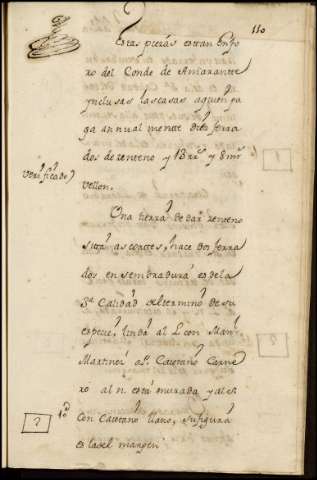 110
Estas piezas estan en fo
ro del Conde de Amarantte
ynclusas las casas a quien pa
ga annual mentte diez ferra
dos de zenteno y 13 rs. y 8 mrs
vellon.
Verificado
Una tierra de dar zenteno
sitta as cortes, hace dos ferra
dos en sembradura es de la
3ª Calidad al termino de su
especie, linda al L. con Manl
Martinez al P. Caietano Carne
ro al n. está murada y al s.
con Caietano liano, su figura
es la del margen
1º